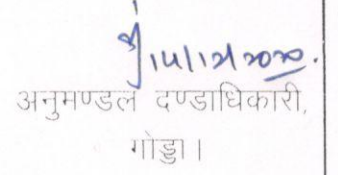 14/12/2020.
अनुमण्डल दण्डाधिकारी,
गोड्डा।